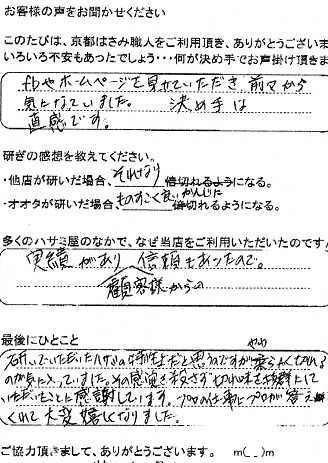 お客様の声をお聞かせください
このたびは、京都はさみ職人をご利用頂き、ありがとうございま
いろいろ不安もあったでしょう・・・何が決め手でお声掛け頂きま
fbやホームページを見せていただき 前々から
気になっていました。 決め手は
直感です。
研ぎの感想を教えてください。
・他店が研いだ場合、それなり 倍切れるようになる。
・オオタが研いだ場合、ものすごく良いかんじに 倍切れるようになる。
多くのハサミ屋のなかで、なぜ当店をご利用いただいたのです
実績があり 信頼もあったので。
顧客様からの
最後にひとこと
研いでいただいたハサミの特性だと思うのですが 柔らかく切れる
のが気に入っていました。その感覚を殺さず切れ味を抜群にして
いただいたことに感謝しています。プロの仕事にプロが答えて
くれて大変嬉しくなりました。
ご協力頂きまして、ありがとうございます。 m(_ _)m